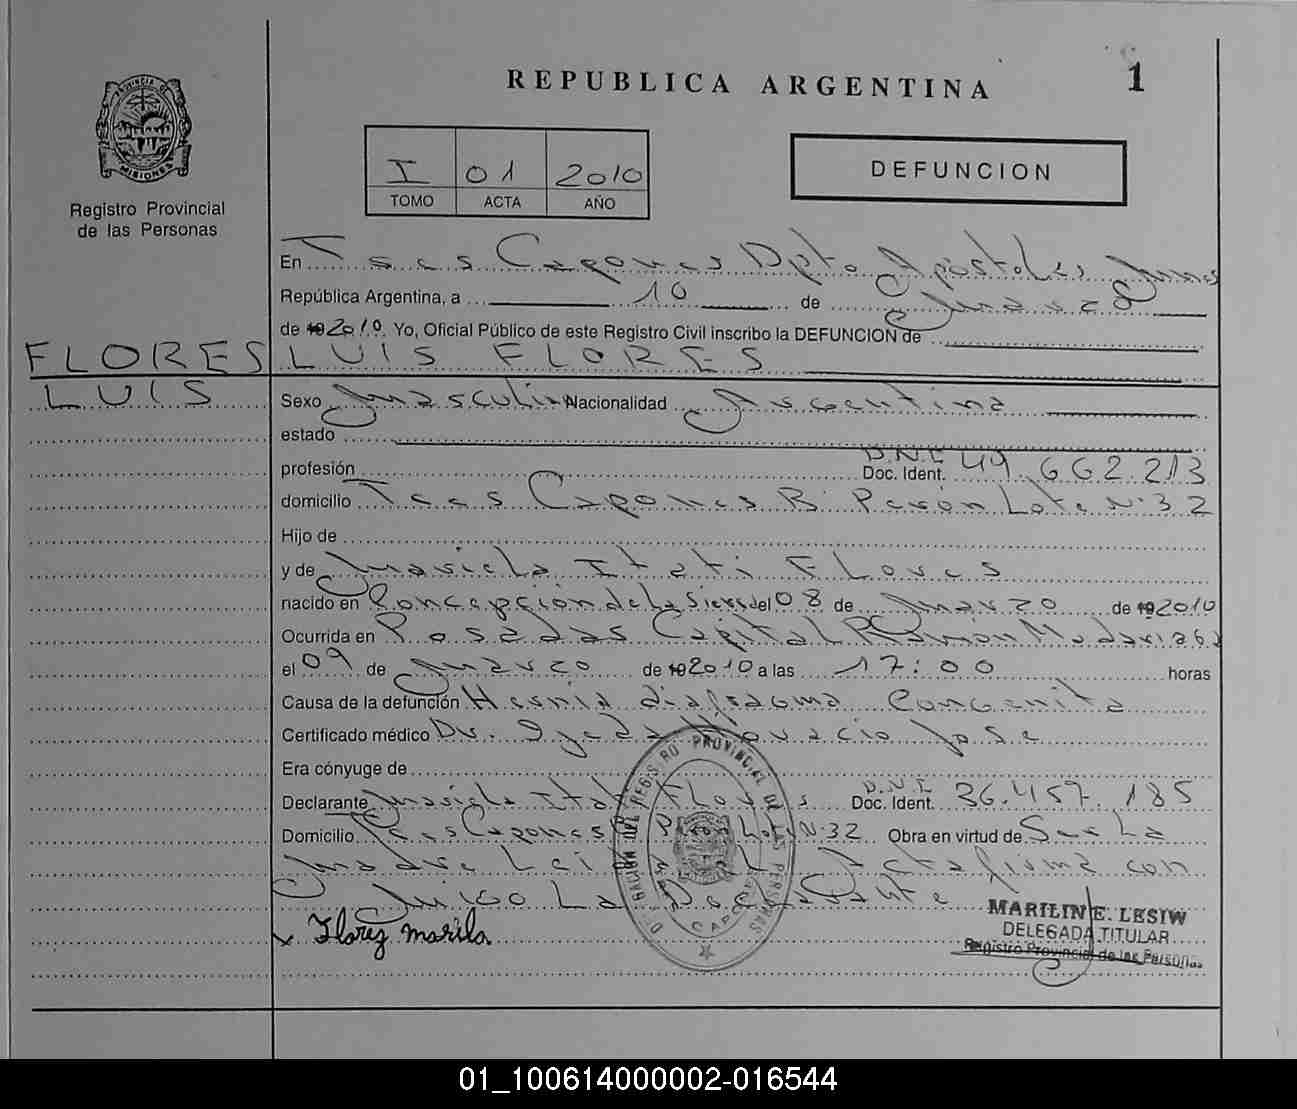 REPUBLICA ARGENTINA
1
PROVINCIA DE MISIONES
Registro Provincial
de las Personas
I 01 2010
TOMO ACTA AÑO
DEFUNCION
En Tres Capones Dpto Apóstoles Mnes
República Argentina, a 10 de Marzo
de 19 2010 Yo, Oficial Público de este Registro Civil inscribo la DEFUNCION de
FLORES LUIS FLORES
LUIS
Sexo Masculino Nacionalidad Argentina
estado
profesión D.N.I Doc. Ident. 49.662.213
domicilio Tres Capones B. Perón Lote N°32
Hijo de
y de Mariela Itati Flores
nacido en Concepción de La Sierra el 08 de Marzo de 19 2010
Ocurrida en Posadas Capital Ramón Madariaga
el 09 de Marzo de 19 2010 a las 17:00 horas
Causa de la defunción Hernia diafragma Congenita
Certificado médico Dr. Horacio José
Era cónyuge de
Declarante Mariela Itati Flores D.N.I Doc. Ident. 36.457.185
Domicilio Tres Capones B Perón Lote N°32 Obra en virtud de Ser La
Madre Leída Acta firma con
migo La Declarante
Florez marila
DELEGACION DEL REGISTRO PROVINCIAL DE LAS PERSONAS
TRES CAPONES
MARILIN E. LESIW
DELEGADA TITULAR
Registro Provincial de las Personas
01_100614000002-016544